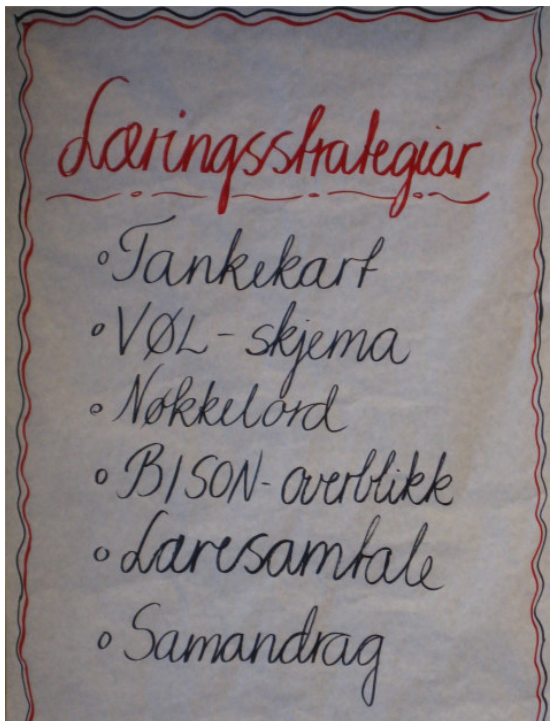 Læringsstrategiar
◦ Tankekart
◦ VØL-skjema
◦ Nøkkelord
◦ BISON-overblikk
◦ Læresamtale
◦ Samandrag